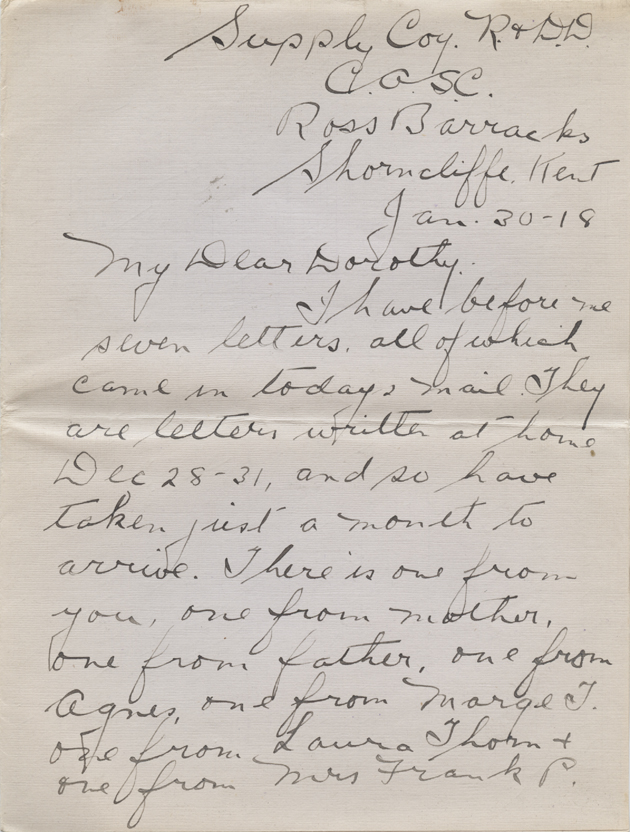 Supply Coy. R. & D.D.
C.A.S.C.
Ross Barracks
Shorncliffe. Kent
Jan. 30-18
My Dear Dorothy.
I have before me
seven letters. all of which
came in todays mail. They
are letters written at home
Dec 28-31, and so have
taken just a month to
arrive. There is one from
you, one from mother,
one from father, one from
Agnes, one from Marge T.
one from Laura Thorn +
one from Mrs Frank P.